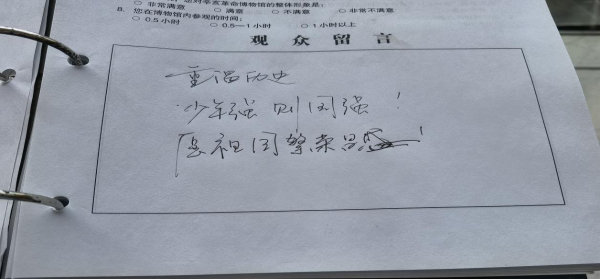 您对辛亥革命博物馆的整体形象是：
○ 非常满意 ○ 满意 ○ 不满意 ○ 非常不满意
8. 您在博物馆内参观的时间：
○ 0.5小时 ○ 0.5—1小时 ○ 1小时以上
观众留言
重温历史
少年强则国强！
愿祖国繁荣昌盛！